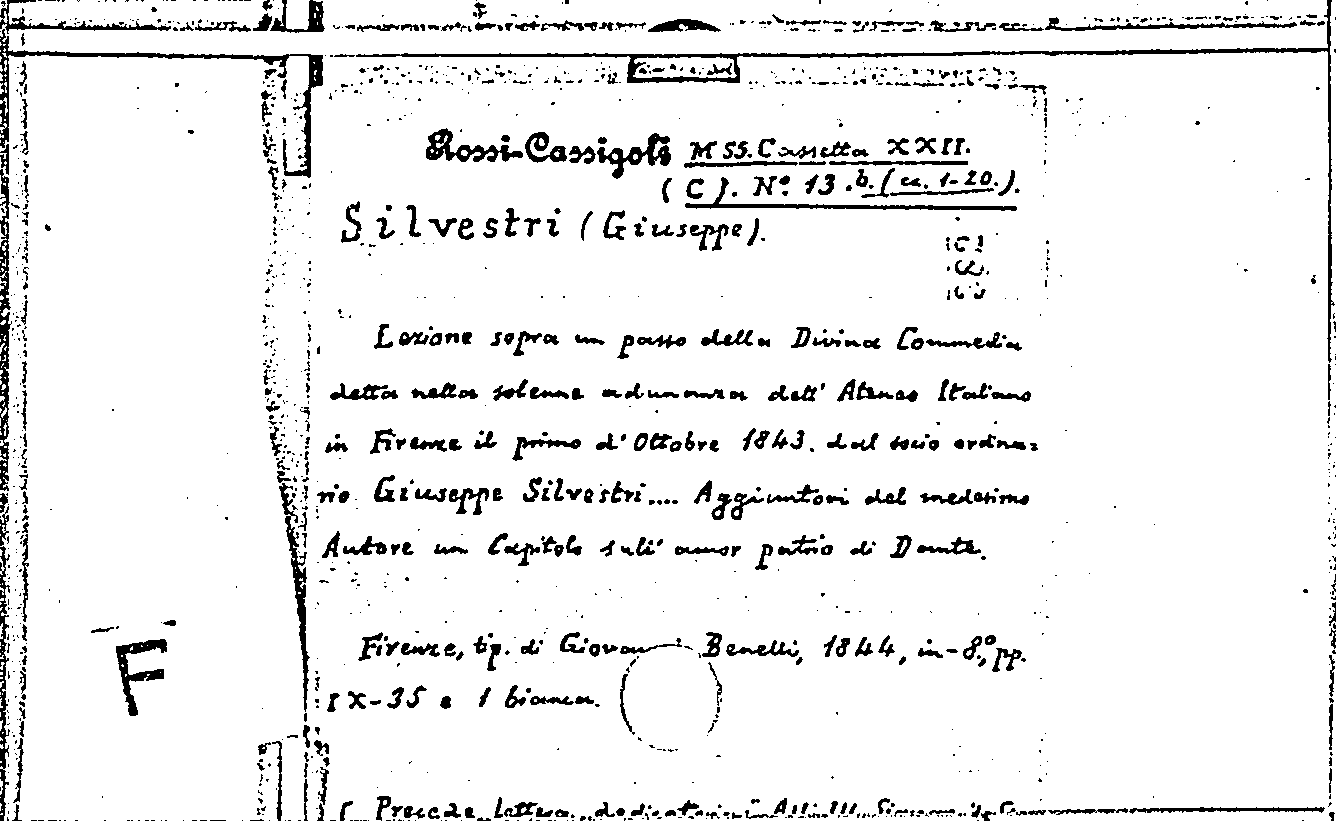 Rossi-Cassigoli MSS. Cassetta XXII.
(C). Nº 13.b. (cc. 1-20.).
Silvestri (Giuseppe).
Lezione sopra un passo della Divina Commedia
detta nella solenne adunanza dell' Ateneo Italiano
in Firenze il primo d' Ottobre 1843. dal socio ordina=
rio Giuseppe Silvestri.... Aggiuntovi del medesimo
Autore un Capitolo sull' amor patrio di Dante.
Firenze, tip. di Giovanni Benelli, 1844, in-8º, pp.
IX-35 e 1 bianca.
[ Precede lettera dedicatoria
F